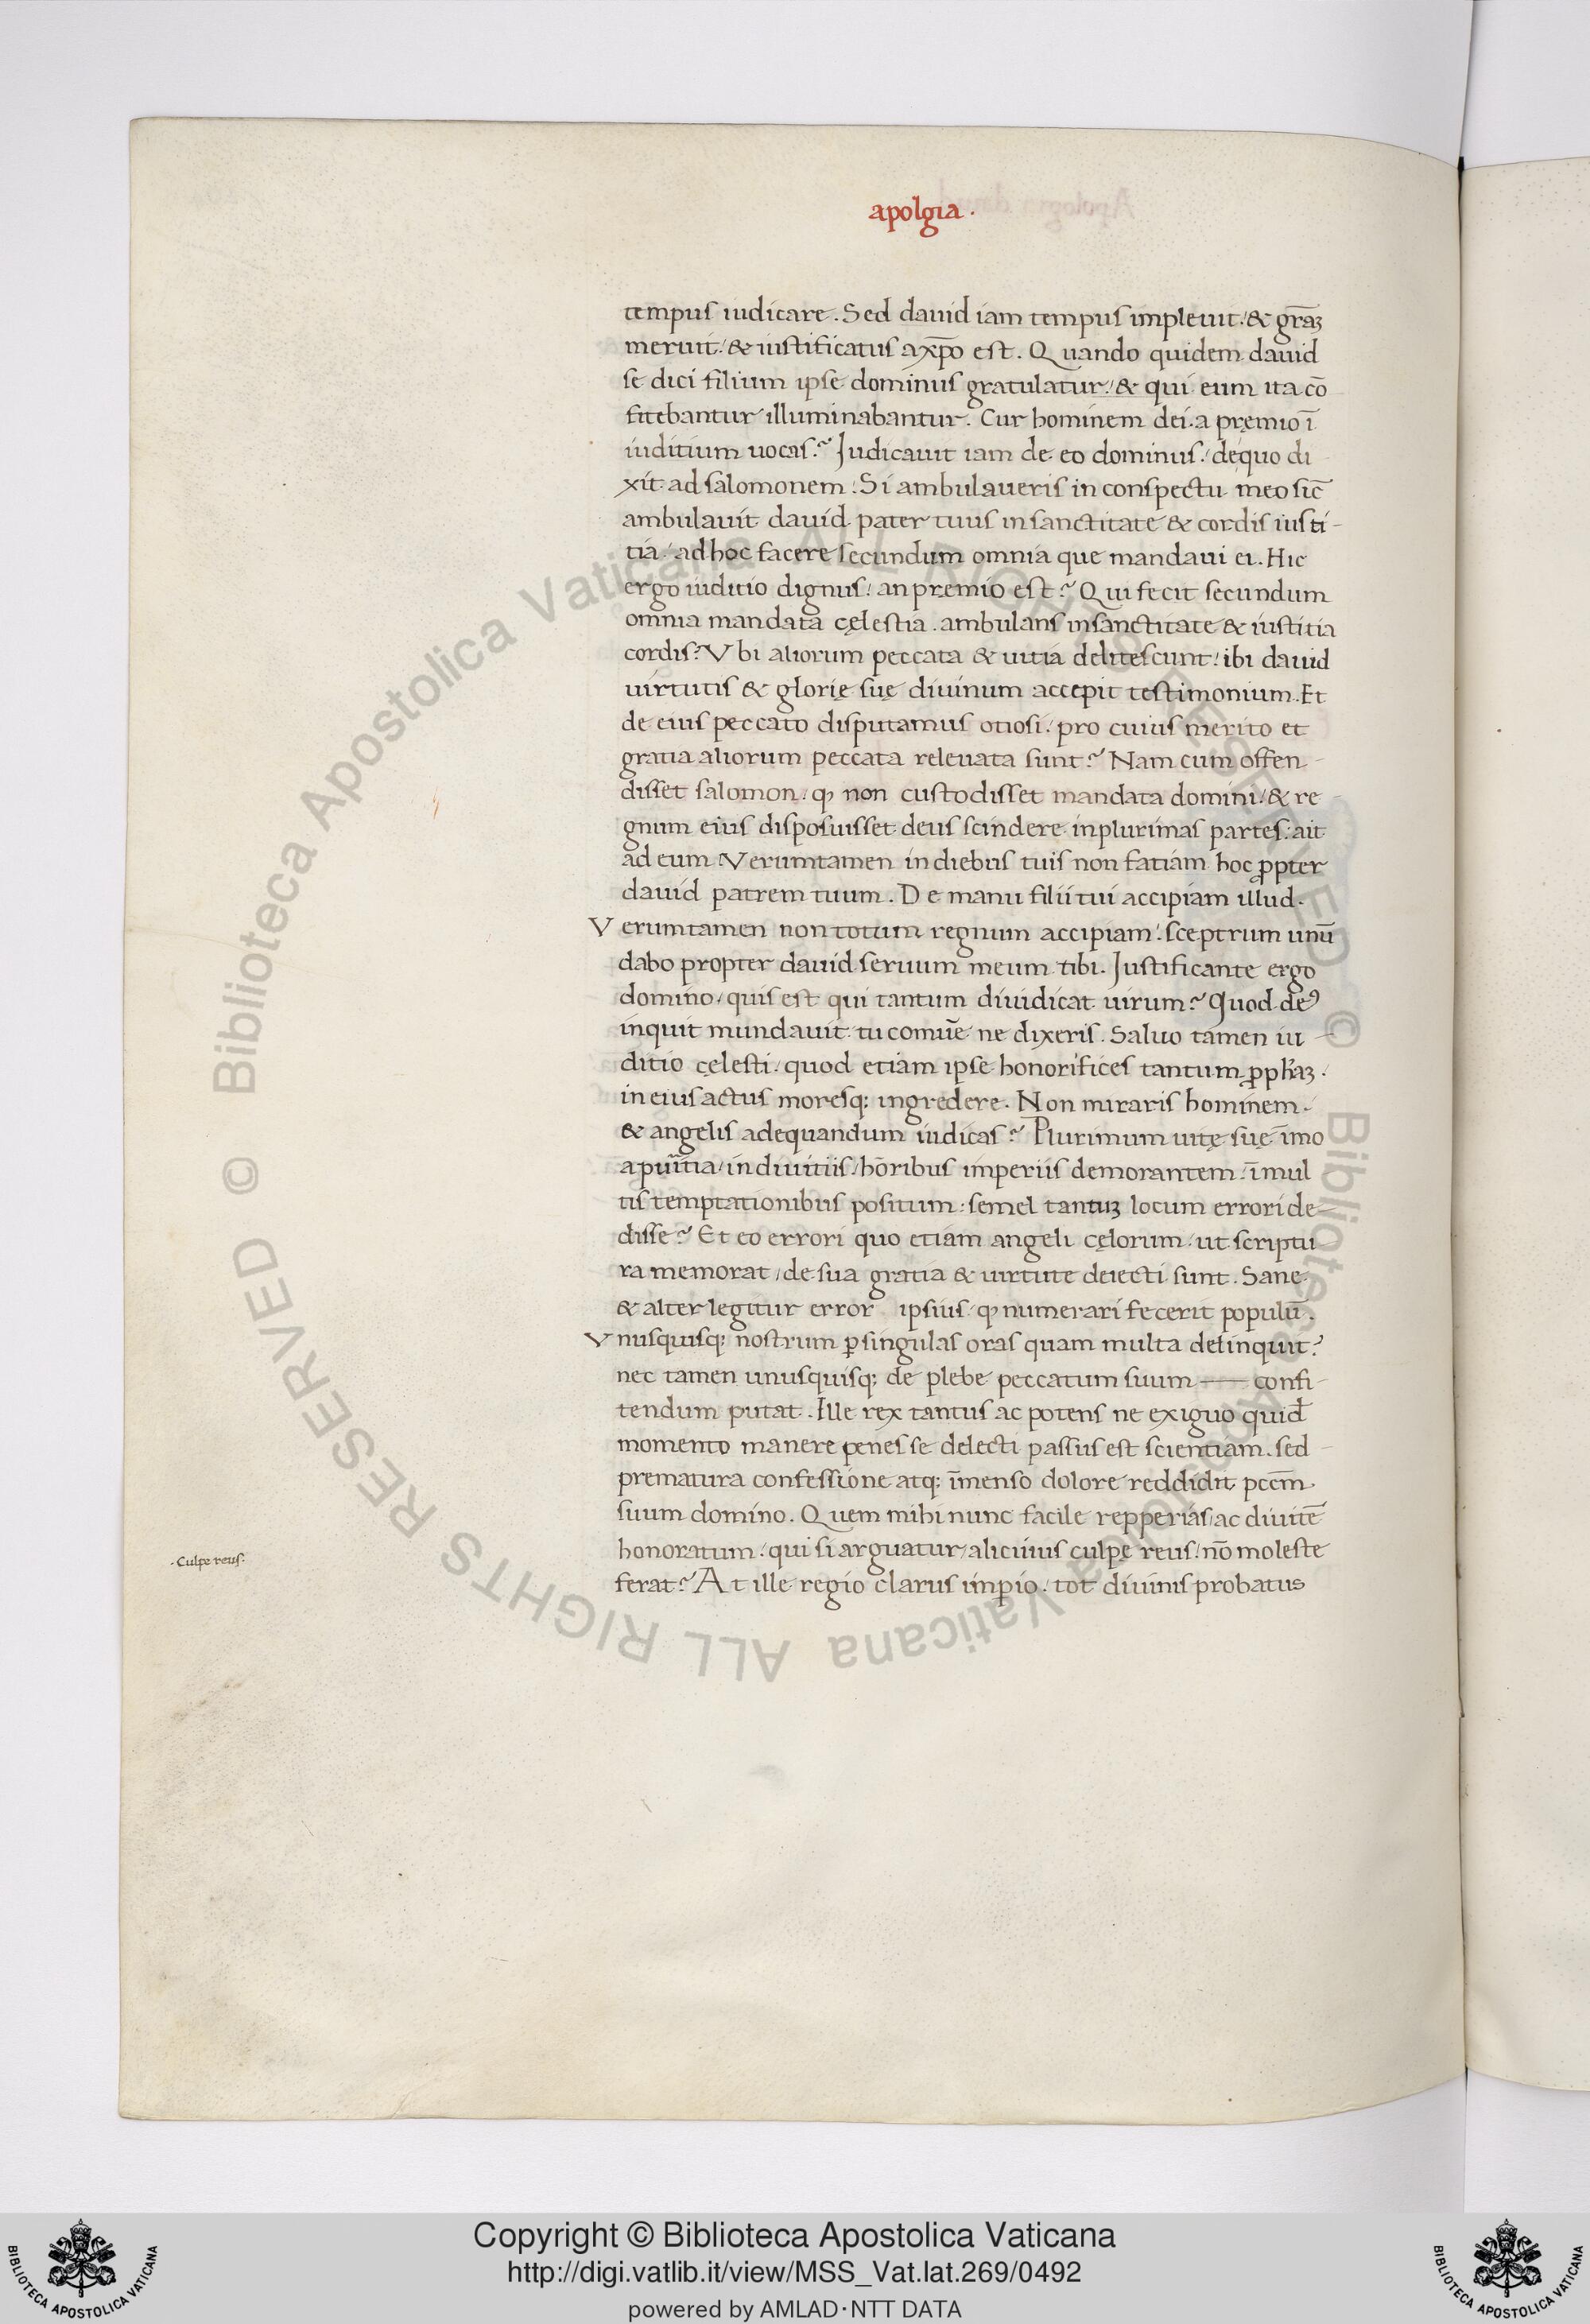 apolgia.
tempus iudicare. Sed dauid iam tempus impleuit: & gr̄aꝫ
meruit: & iustificatus a xp̄o est. Quando quidem dauid
se dici filium ipse dominus gratulatur: & qui eum ita cō
fitebantur illuminabantur. Cur hominem dei a pręmio ī
iuditium uocas? Judicauit iam de eo dominus: de quo di
xit ad salomonem: Si ambulaueris in conspectu meo sic̄
ambulauit dauid pater tuus in sanctitate & cordis iusti-
tia: ad hoc facere secundum omnia que mandaui ei. Hic
ergo iuditio dignus: an pręmio est? Qui fecit secundum
omnia mandata cęlestia. ambulans in sanctitate & iustitia
cordis? Vbi aliorum peccata & uitia delitescunt: ibi dauid
uirtutis & glorię suę diuinum accepit testimonium. Et
de eius peccato disputamus otiosi: pro cuius merito et
gratia aliorum peccata releuata sunt? Nam cum offen-
disset salomon: ꝙ non custodisset mandata domini: & re
gnum eius disposuisset deus scindere in plurimas partes: ait
ad eum Verumtamen in diebus tuis non fatiam hoc ꝓpter
dauid patrem tuum. De manu filii tui accipiam illud.
Verumtamen non totum regnum accipiam: sceptrum unū
dabo propter dauid seruum meum tibi. Justificante ergo
domino: quis est qui tantum diuidicat uirum? Quod deꝰ
inquit mundauit tu comūe ne dixeris. Saluo tamen iu-
ditio cęlesti: quod etiam ipse honorifices tantum ꝓph̄aꝫ.
in eius actus moresq; ingredere. Non miraris hominem:
& angelis adequandum iudicas? Plurimum uitę suę īmo
a pūitia: in diuitiis: hōribus imperiis demorantem: ī mul
tis temptationibus positum: semel tantuꝫ locum errori de-
disse? Et eo errori quo etiam angeli cęlorum: ut scriptu
ra memorat: de sua gratia & uirtute deiecti sunt. Sane
& alter legitur error ipsius ꝙ numerari fecerit populū.
Vnusquisq; nostrum ꝑ singulas oras quam multa delinquit?
nec tamen unusquisq; de plebe peccatum suum — confi-
tendum putat. Ille rex tantus ac potens ne exiguo quid̄
momento manere penes se delecti passus est scientiam. sed
prematura confessione atq; īmenso dolore reddidit pcc̄m
suum domino. Quem mihi nunc facile repperias: ac diuitē
honoratum: qui si arguatur: alicuius culpę reus: nō moleste
ferat? At ille regio clarus imꝑio: tot diuinis probatus
.Culpe reus.
Copyright © Biblioteca Apostolica Vaticana
http://digi.vatlib.it/view/MSS_Vat.lat.269/0492
powered by AMLAD·NTT DATA
BIBLIOTECA APOSTOLICA VATICANA
BIBLIOTECA APOSTOLICA VATICANA
© Biblioteca Apostolica Vaticana ALL RIGHTS RESERVED
© Biblioteca Apostolica Vaticana ALL RIGHTS RESERVED